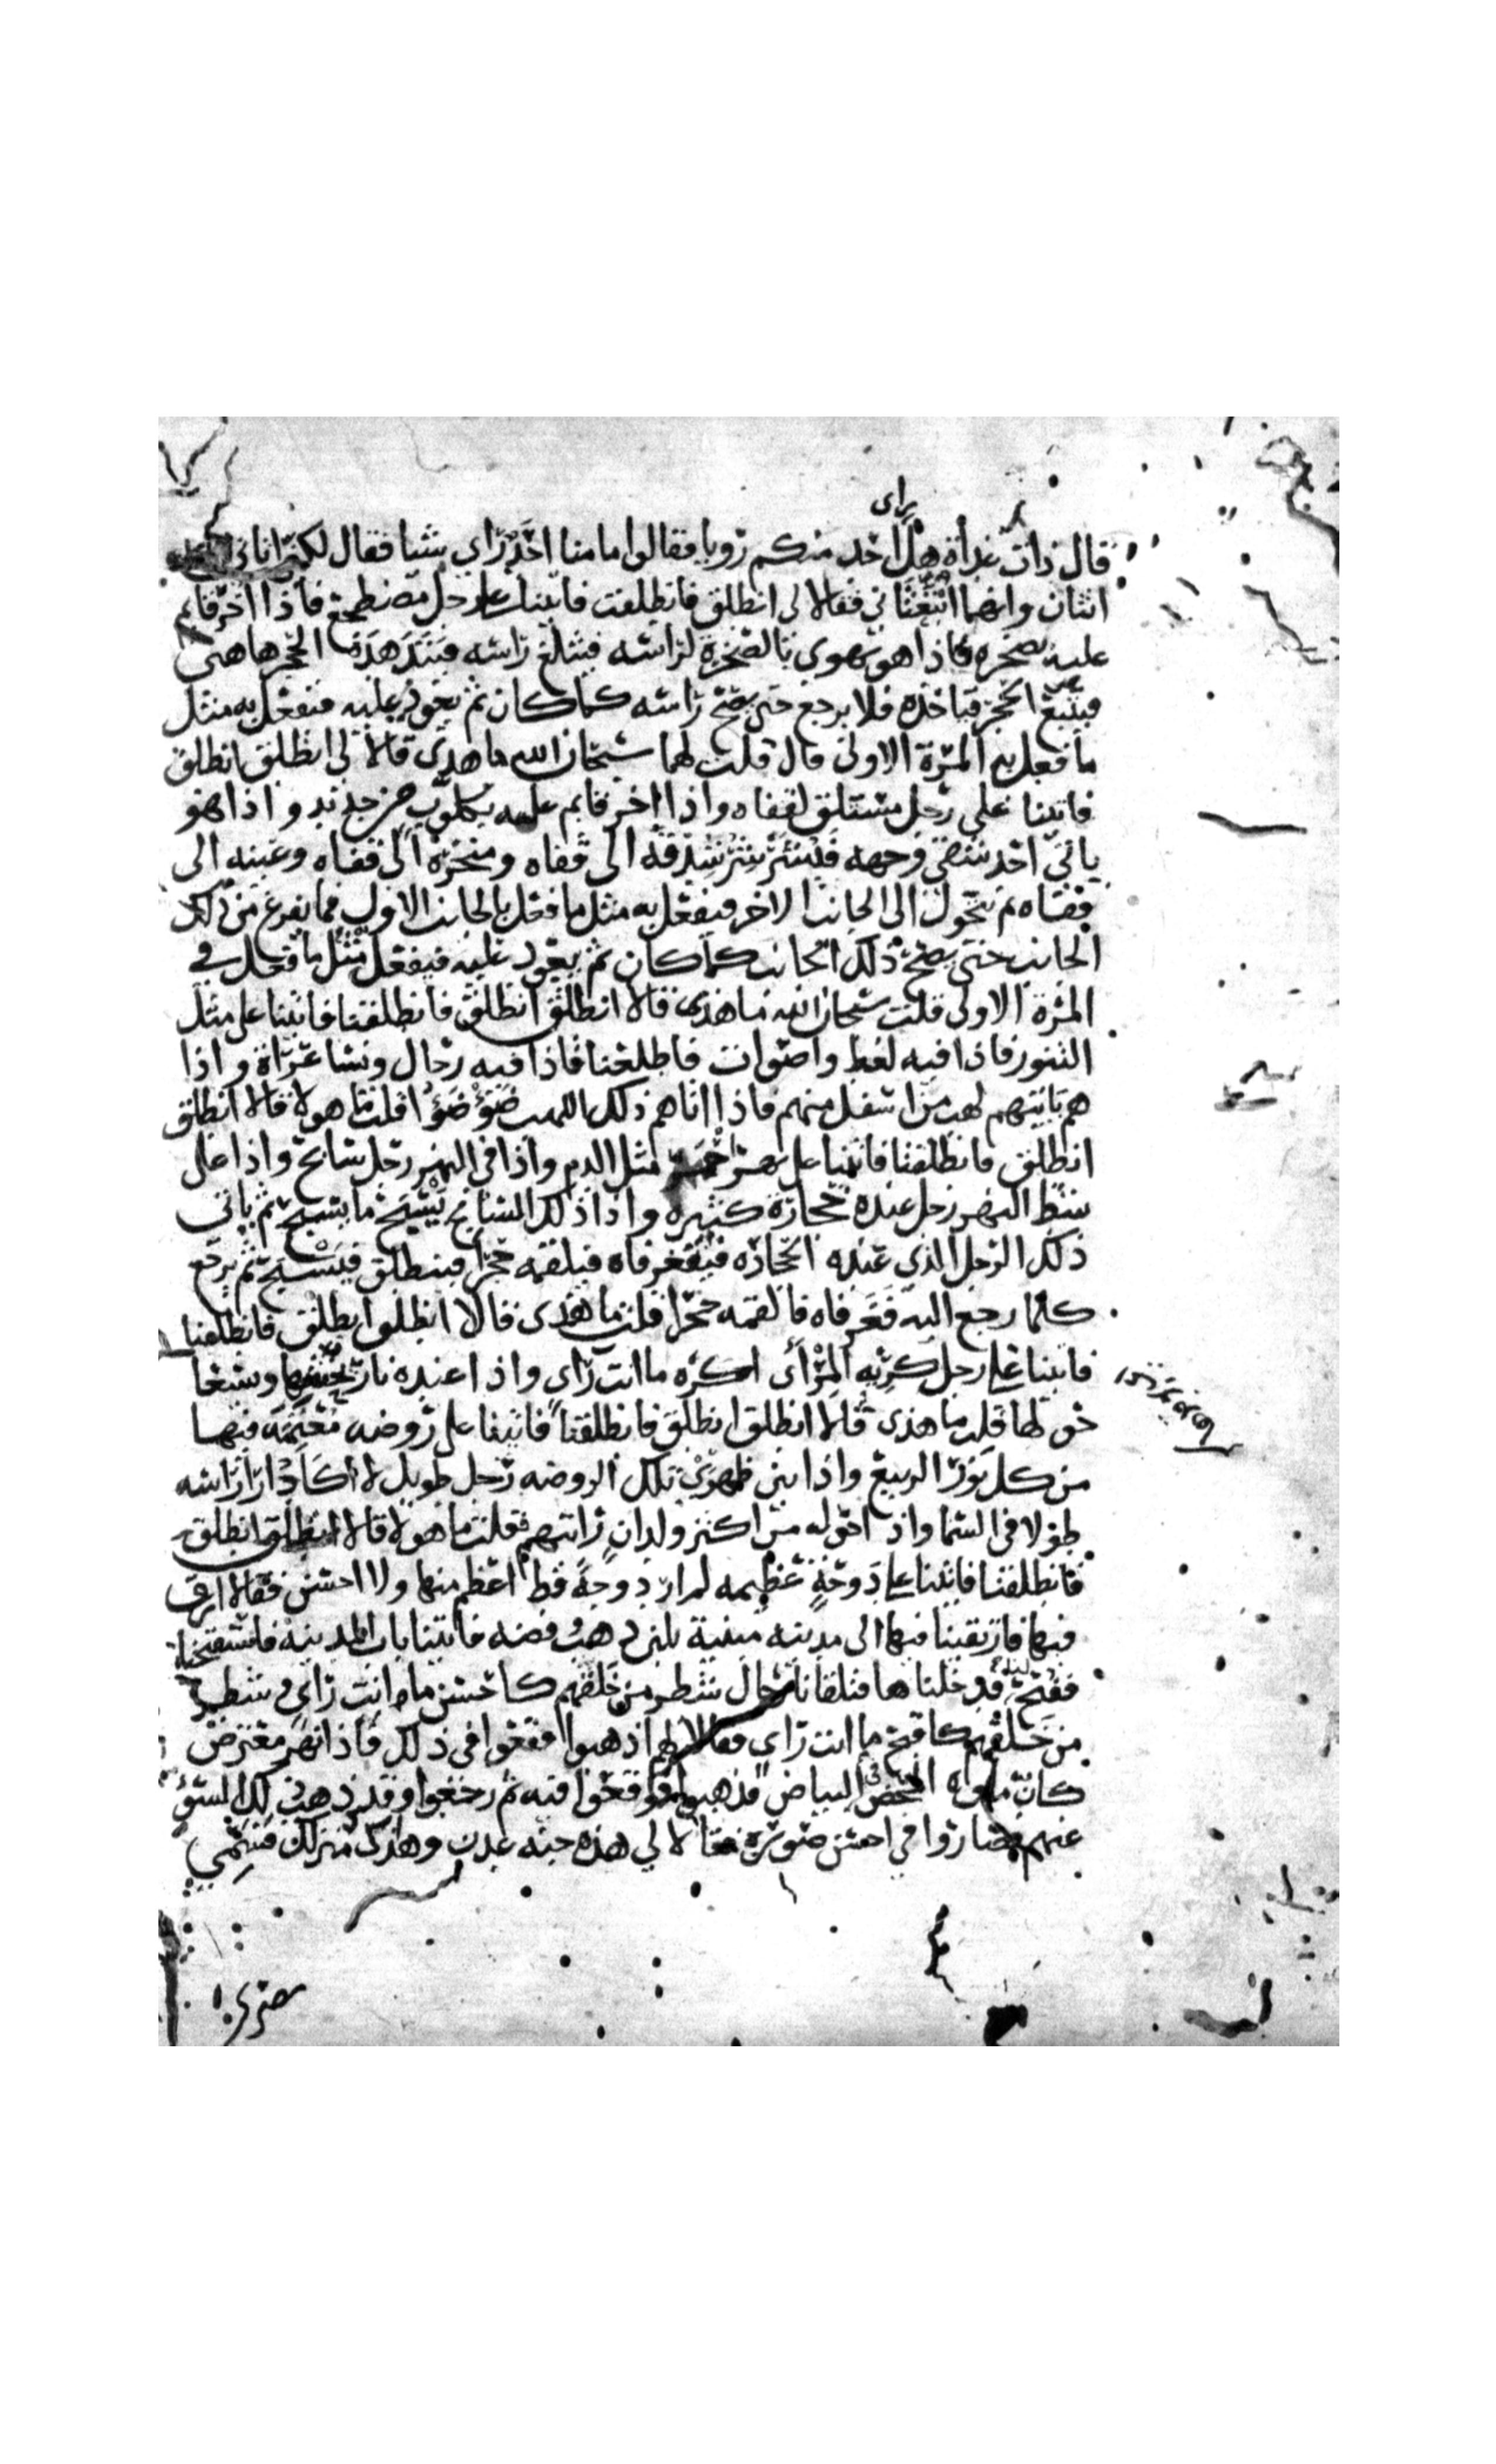 راى
قال ذات غداة هل احد منكم رويا فقالوا ما منا احد راى شيا فقال لكن انا اتاني
اثنان وانهما ابتعثاني فقالا لي انطلق فانطلقت فاتينا على رجل مضطجع فاذا اخر قايم
عليه بصخره فاذا هو يهوي بالصخرة لراسه فيثلغ راسه فيتدهده الحجر هاهى
فيتبع الحجر فياخذه فلا يرجع حتى يصح راسه كما كان ثم يعود عليه فيفعل به مثل
ما فعل به المرة الاولى قال قلت لهما سبحان الله ما هذى قالا لي انطلق انطلق
فاتينا على رجل مستلق لقفاه واذا اخر قايم عليه بكلوب من حديد واذا هو
ياتي احد شقي وجهه فيشرشر شدقه الى قفاه ومنخره الى قفاه وعينه الى
قفاه ثم يتحول الى الجانب الاخر فيفعل به مثل ما فعل بالجانب الاول فما يفرغ من ذلك
الجانب حتى يصح ذلك الجانب كما كان ثم يعود عليه فيفعل مثل ما فعل في
المرة الاولى قلت سبحان الله ما هذى قالا انطلق انطلق فانطلقنا فاتينا على مثل
التنور فاذا فيه لغط واصوات فاطلعنا فاذا فيه رجال ونسا عراة واذا
هم ياتيهم لهب من اسفل منهم فاذا اتاهم ذلك اللهب ضوضوا قلت ما هولا قالا انطلق
انطلق فانطلقنا فاتينا على نهر احمر مثل الدم واذا في النهر رجل سابح واذا على
شط النهر رجل عنده حجارة كثيره واذا ذلك السابح يسبح ما يسبح ثم ياتي
ذلك الرجل الذي عنده الحجاره فيفغر فاه فيلقمه حجرا فينطلق فيسبح ثم يرجع
كلما رجع اليه فغر فاه فالقمه حجرا قلت ما هذى قالا انطلق انطلق فانطلقنا
فاتينا على رجل كريه المراى اكره ما انت راى واذا عنده نار يحشها ويسعا
حولها قلت ما هذى قالا انطلق انطلق فانطلقنا فاتينا على روضه معتمه فيها
من كل نور الربيع واذا بين ظهري تلك الروضه رجل طويل لا اكاد ارا راسه
طولا في السما واذا حوله من اكثر ولدان رايتهم فقلت ما هولا قالا انطلق انطلق
فانطلقنا فاتينا على دوحة عظيمه لم ار دوحة قط اعظم منها ولا احسن فقالا ارق
فيها فارتقينا فيها الى مدينه مبنية بلبن ذهب وفضه فاتينا باب المدينه فاستفتحنا
ففتح لنا فدخلناها فتلقانا رجال شطر من خلقهم كاحسن ما انت راى وشطر
من خلقهم كاقبح ما انت راى فقالا لهم اذهبوا فقعوا في ذلك فاذا نهر معترض
كان ماوه المحض في البياض فذهبوا فوقعوا فيه ثم رجعوا وقد ذهب ذلك السو
عنهم فصاروا في احسن صورة فقالا لي هذه جنه عدن وهذى منزلك فسمى